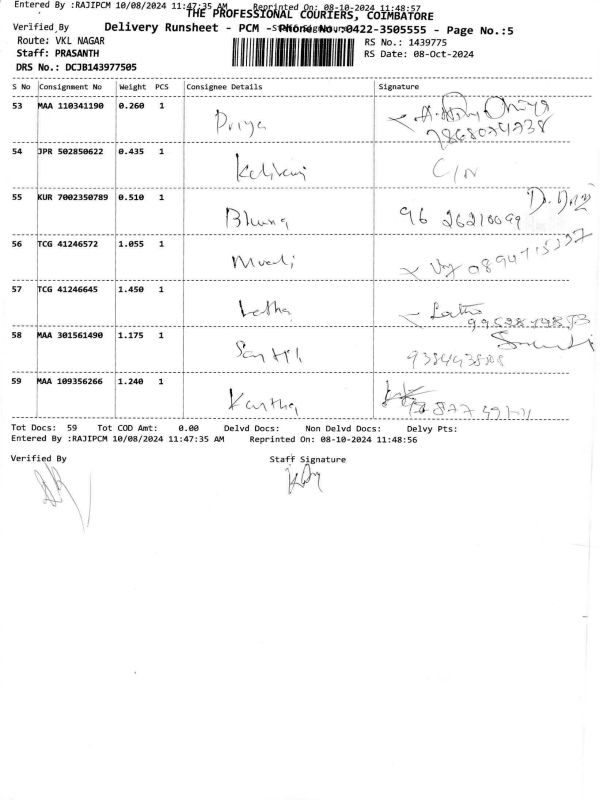 Entered By :RAJIPCM 10/08/2024 11:47:35 AM Reprinted On: 08-10-2024 11:48:57
THE PROFESSIONAL COURIERS, COIMBATORE
Verified By Staff Signature
Delivery Runsheet - PCM - Phone No.:0422-3505555 - Page No.:5
Route: VKL NAGAR RS No.: 1439775
Staff: PRASANTH RS Date: 08-Oct-2024
DRS No.: DCJB143977505
S No Consignment No Weight PCS Consignee Details Signature
53 MAA 110341190 0.260 1 Priya
54 JPR 502850622 0.435 1 C/N
55 KUR 7002350789 0.510 1 96 26210099
56 TCG 41246572 1.055 1
57 TCG 41246645 1.450 1 Latha Latha
58 MAA 301561490 1.175 1
59 MAA 109356266 1.240 1
Tot Docs: 59 Tot COD Amt: 0.00 Delvd Docs: Non Delvd Docs: Delvy Pts:
Entered By :RAJIPCM 10/08/2024 11:47:35 AM Reprinted On: 08-10-2024 11:48:56
Verified By Staff Signature